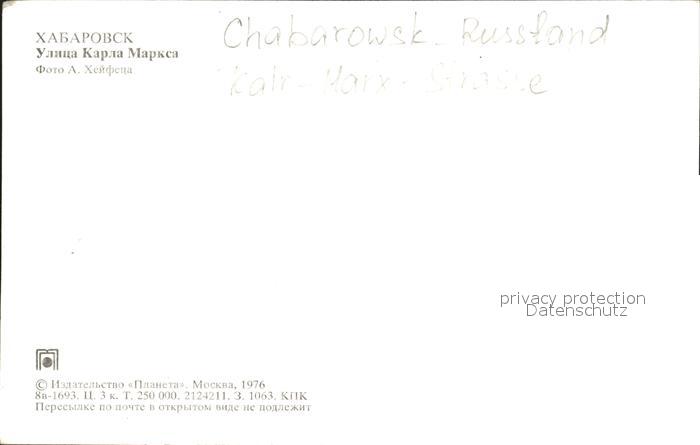 ХАБАРОВСК
Улица Карла Маркса
Фото А. Хейфеца
Chabarowsk - Russland
Kalr - Marx - Strasse
privacy protection
Datenschutz
© Издательство «Планета». Москва, 1976
8в-1693. Ц. 3 к. Т. 250 000. 2124211. З. 1063. КПК
Пересылке по почте в открытом виде не подлежит